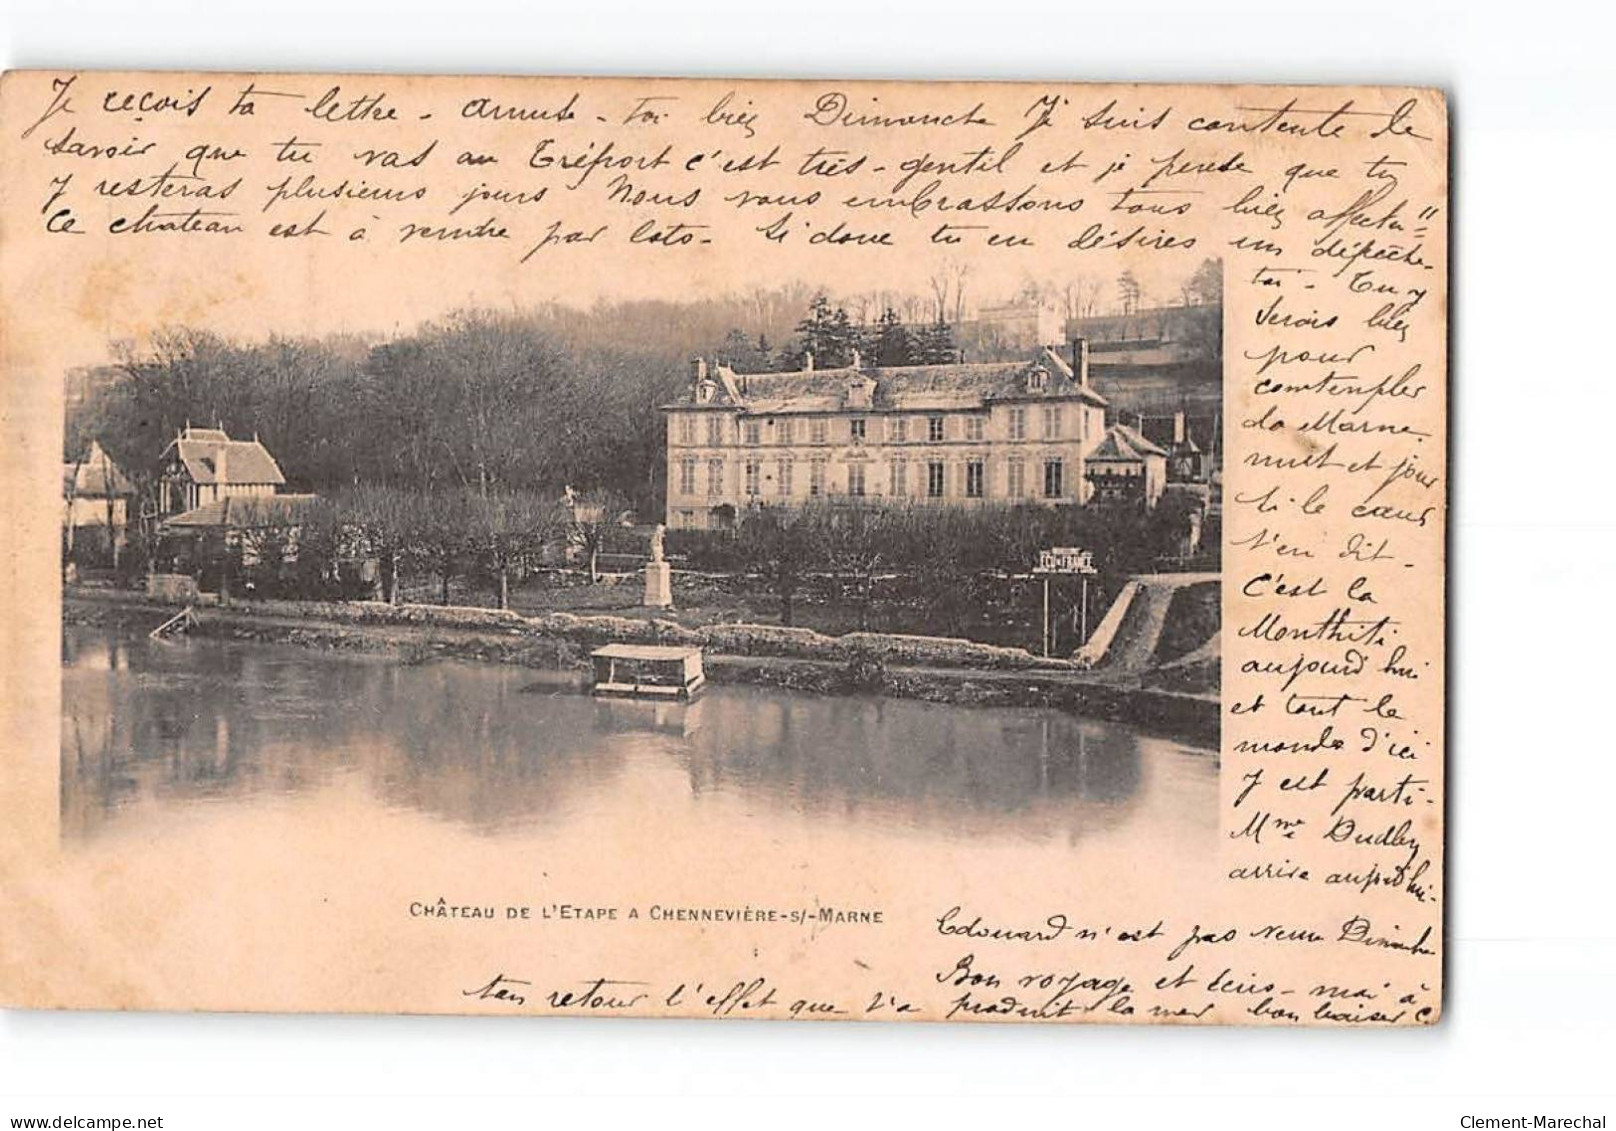 Je reçois ta lettre - Amuse-toi bien Dimanche Je suis contente de
savoir que tu vas au Tréport c'est très-gentil et je pense que tu
y resteras plusieurs jours Nous vous embrassons tous bien affectu"
Ce chateau est à vendre par lots - Si donc tu en désires un dépèche-
toi - Tu y
serais bien
pour
contempler
la Marne
nuit et jour
si le coeur
t'en dit -
C'est la
aujourd'hui
et tout le
monde d'ici
y est parti -
Mme Dudley
arrive aujourd'hui -
ECO DE FRANCE
CHÂTEAU DE L'ETAPE A CHENNEVIÈRE-S/-MARNE
Edouard n'est pas venu Dimanche
Bon voyage et écris-moi à
ton retour l'effet que t'a produit la mer bon baiser C.
Clement-Marechal
delcampe.net